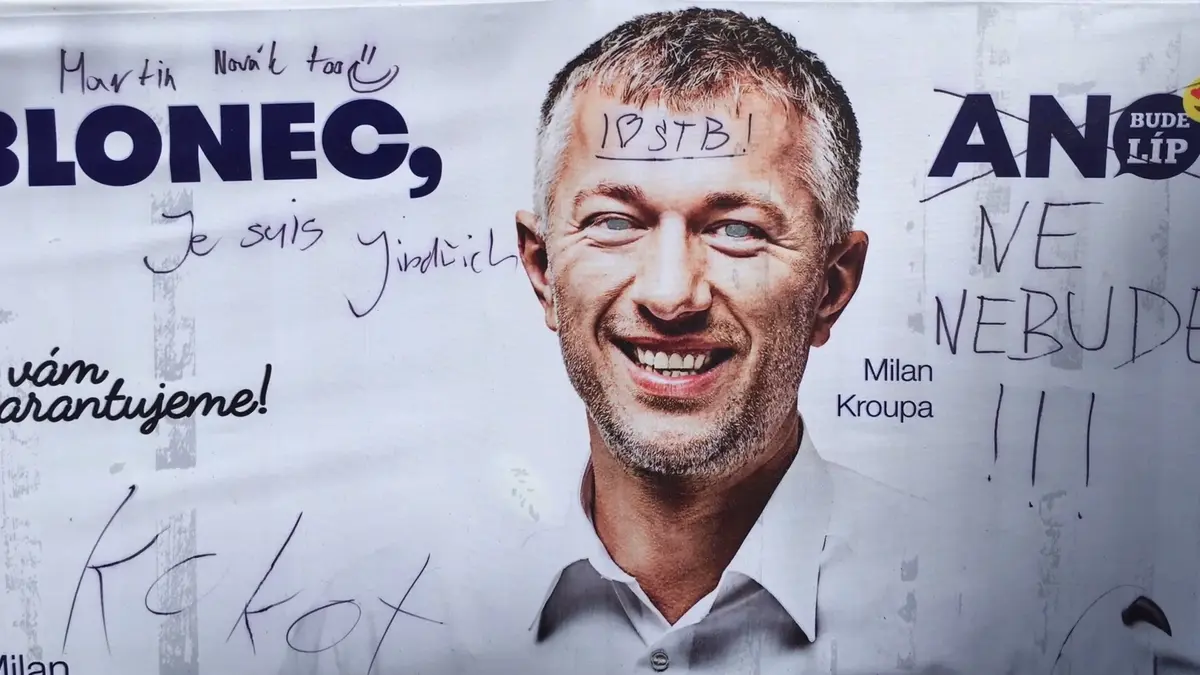 Martin Novák too
BLONEC,
Je suis Jindřich
vám
arantujeme!
Kokox
Milan
STB!
Milan
Kroupa
ANO
BUDE
LÍP
NE
NEBUDE
!!!